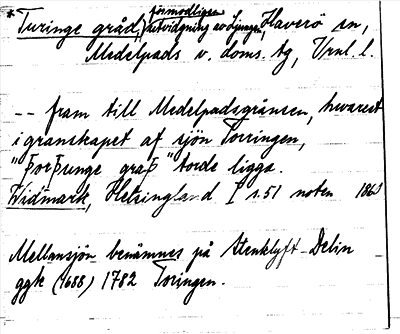 förmodligen
* Turinge gråd, utvidgning av Ljungan, Haverö sn,
Medelpads v. doms. tg, Vrnl. l.
-- fram till Medelpadsgränsen, hvarest
i granskapet af sjön Torringen,
"Þorþunge graþ" torde ligga.
Widmark, Helsingland I s. 51 noten 1860
Mellansjön benämnes på Stenklyft-Delin
ggk (1688) 1782 Toringen.